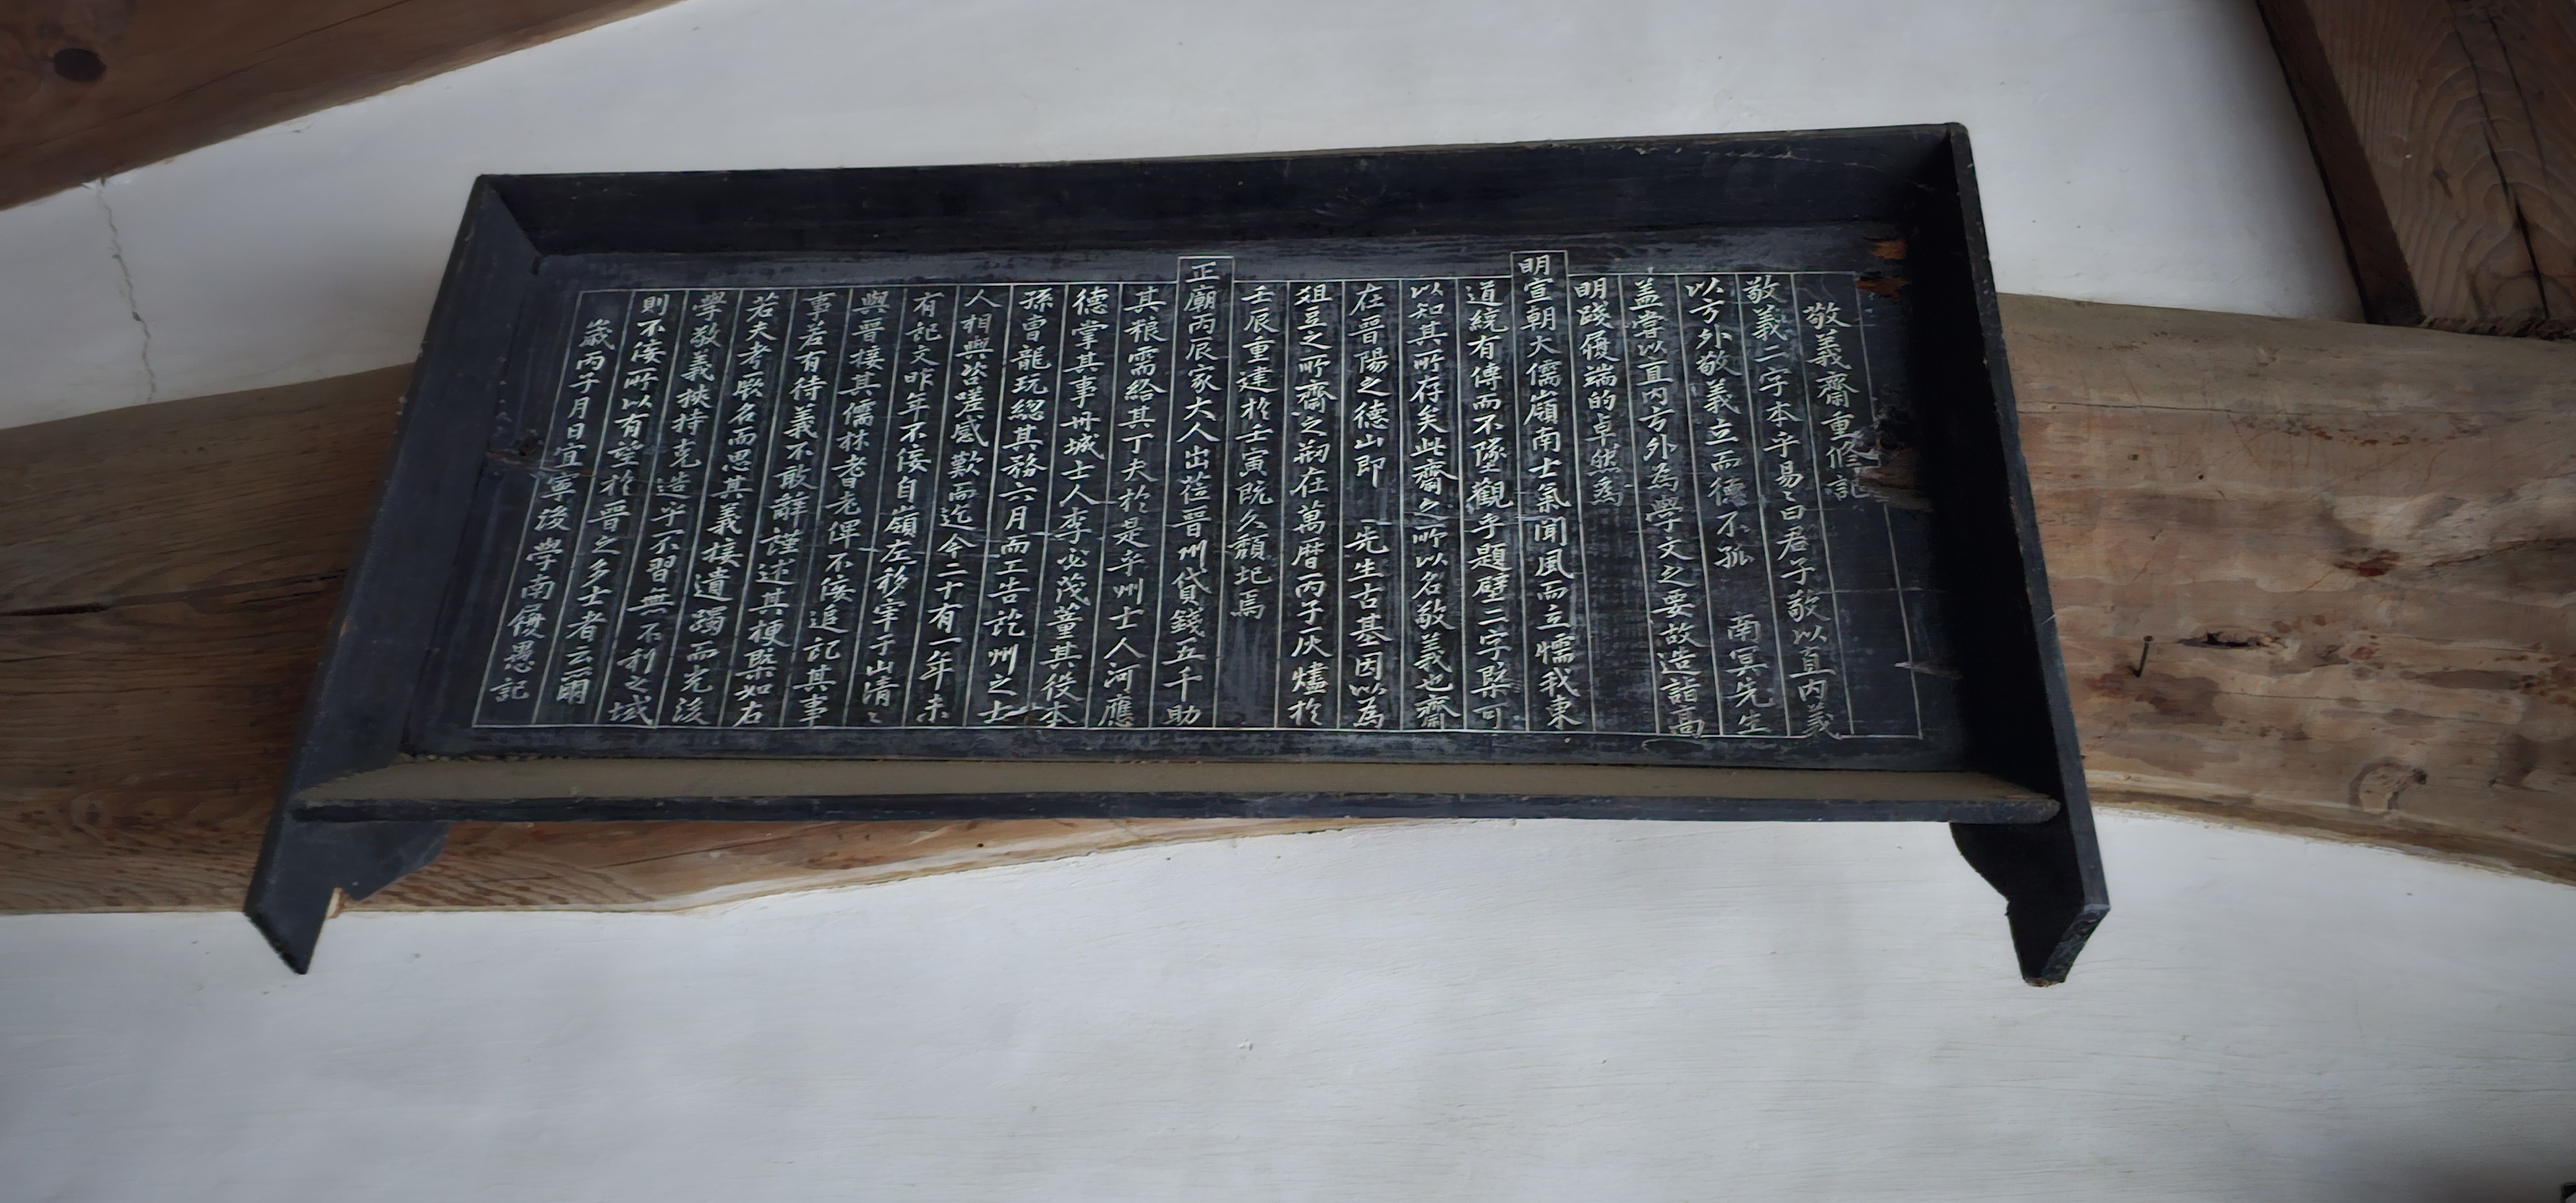 敬義齋重修記
敬義二字本乎易〻曰君子敬以直内義
以方外敬義立而德不孤 南冥先生
盖嘗以直内方外為學文之要故造詣高
明踐履端的卓然為
明宣朝大儒嶺南士氣聞風而立懦我東
道統有傳而不墜觀乎題壁二字槩可
以知其所存矣此齋之所以名敬義也齋
在晋陽之德山即 先生古基因以為
俎豆之所齋之刱在萬曆丙子灰燼於
壬辰重建於壬寅旣久頹圮焉
正廟丙辰家大人出莅晋州貸錢五千助
其粮需給其丁夫於是乎州士人河應
德掌其事丹城士人李必茂董其役本
孫曺龍玩緫其務六月而工告訖州之士
人相與咨嗟感歎而迄今二十有一年未
有記文昨年不佞自嶺左移宰于山清〻
與晋接其儒林耆老俾不佞追記其事
事若有待義不敢辭謹述其梗槩如右
若夫考厥名而思其義接遺躅而光後
學敬義挾持克造乎不習無不利之域
則不佞所以有望於晋之多士者云爾
歲丙子月日宜寧後學南履愚記